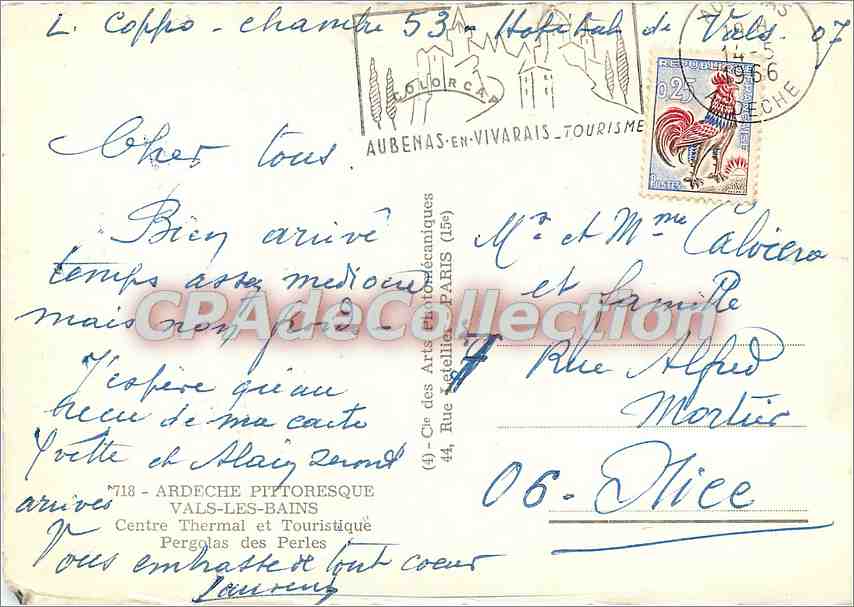 L. Coppo - chambre 53 - Hopital de Vals. 07
COLORCAP
AUBENAS-EN-VIVARAIS-TOURISME
14-5
1966
ARDECHE
0,25
POSTES
Cher tous
Bien arrivé
temps assez mediocre
mais non froid -
J'espère qu'au
recu de ma carte
Yvette et Alain seront
arrivés
Vous embrasse de tout coeur
Laurent
*718 - ARDECHE PITTORESQUE
VALS-LES-BAINS
Centre Thermal et Touristique
Pergolas des Perles
(4) - Cie des Arts Photomécaniques
44, Rue Letellier - PARIS (15e)
Mr et Mme Calviera
et famille
7 Rue Alfred
Mortier
06 - Nice
CPAdeCollection